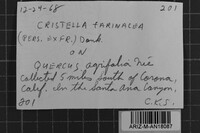 12-29-68 201
CRISTELLA FARINACEA
(PERS. EX FR.) Donk
ON
QUERCUS, agrifolia Née
collected 5 miles south of Corona,
Calif. In the Santa Ana Canyon,
201 C.K.S.
ARIZ-M-AN18087